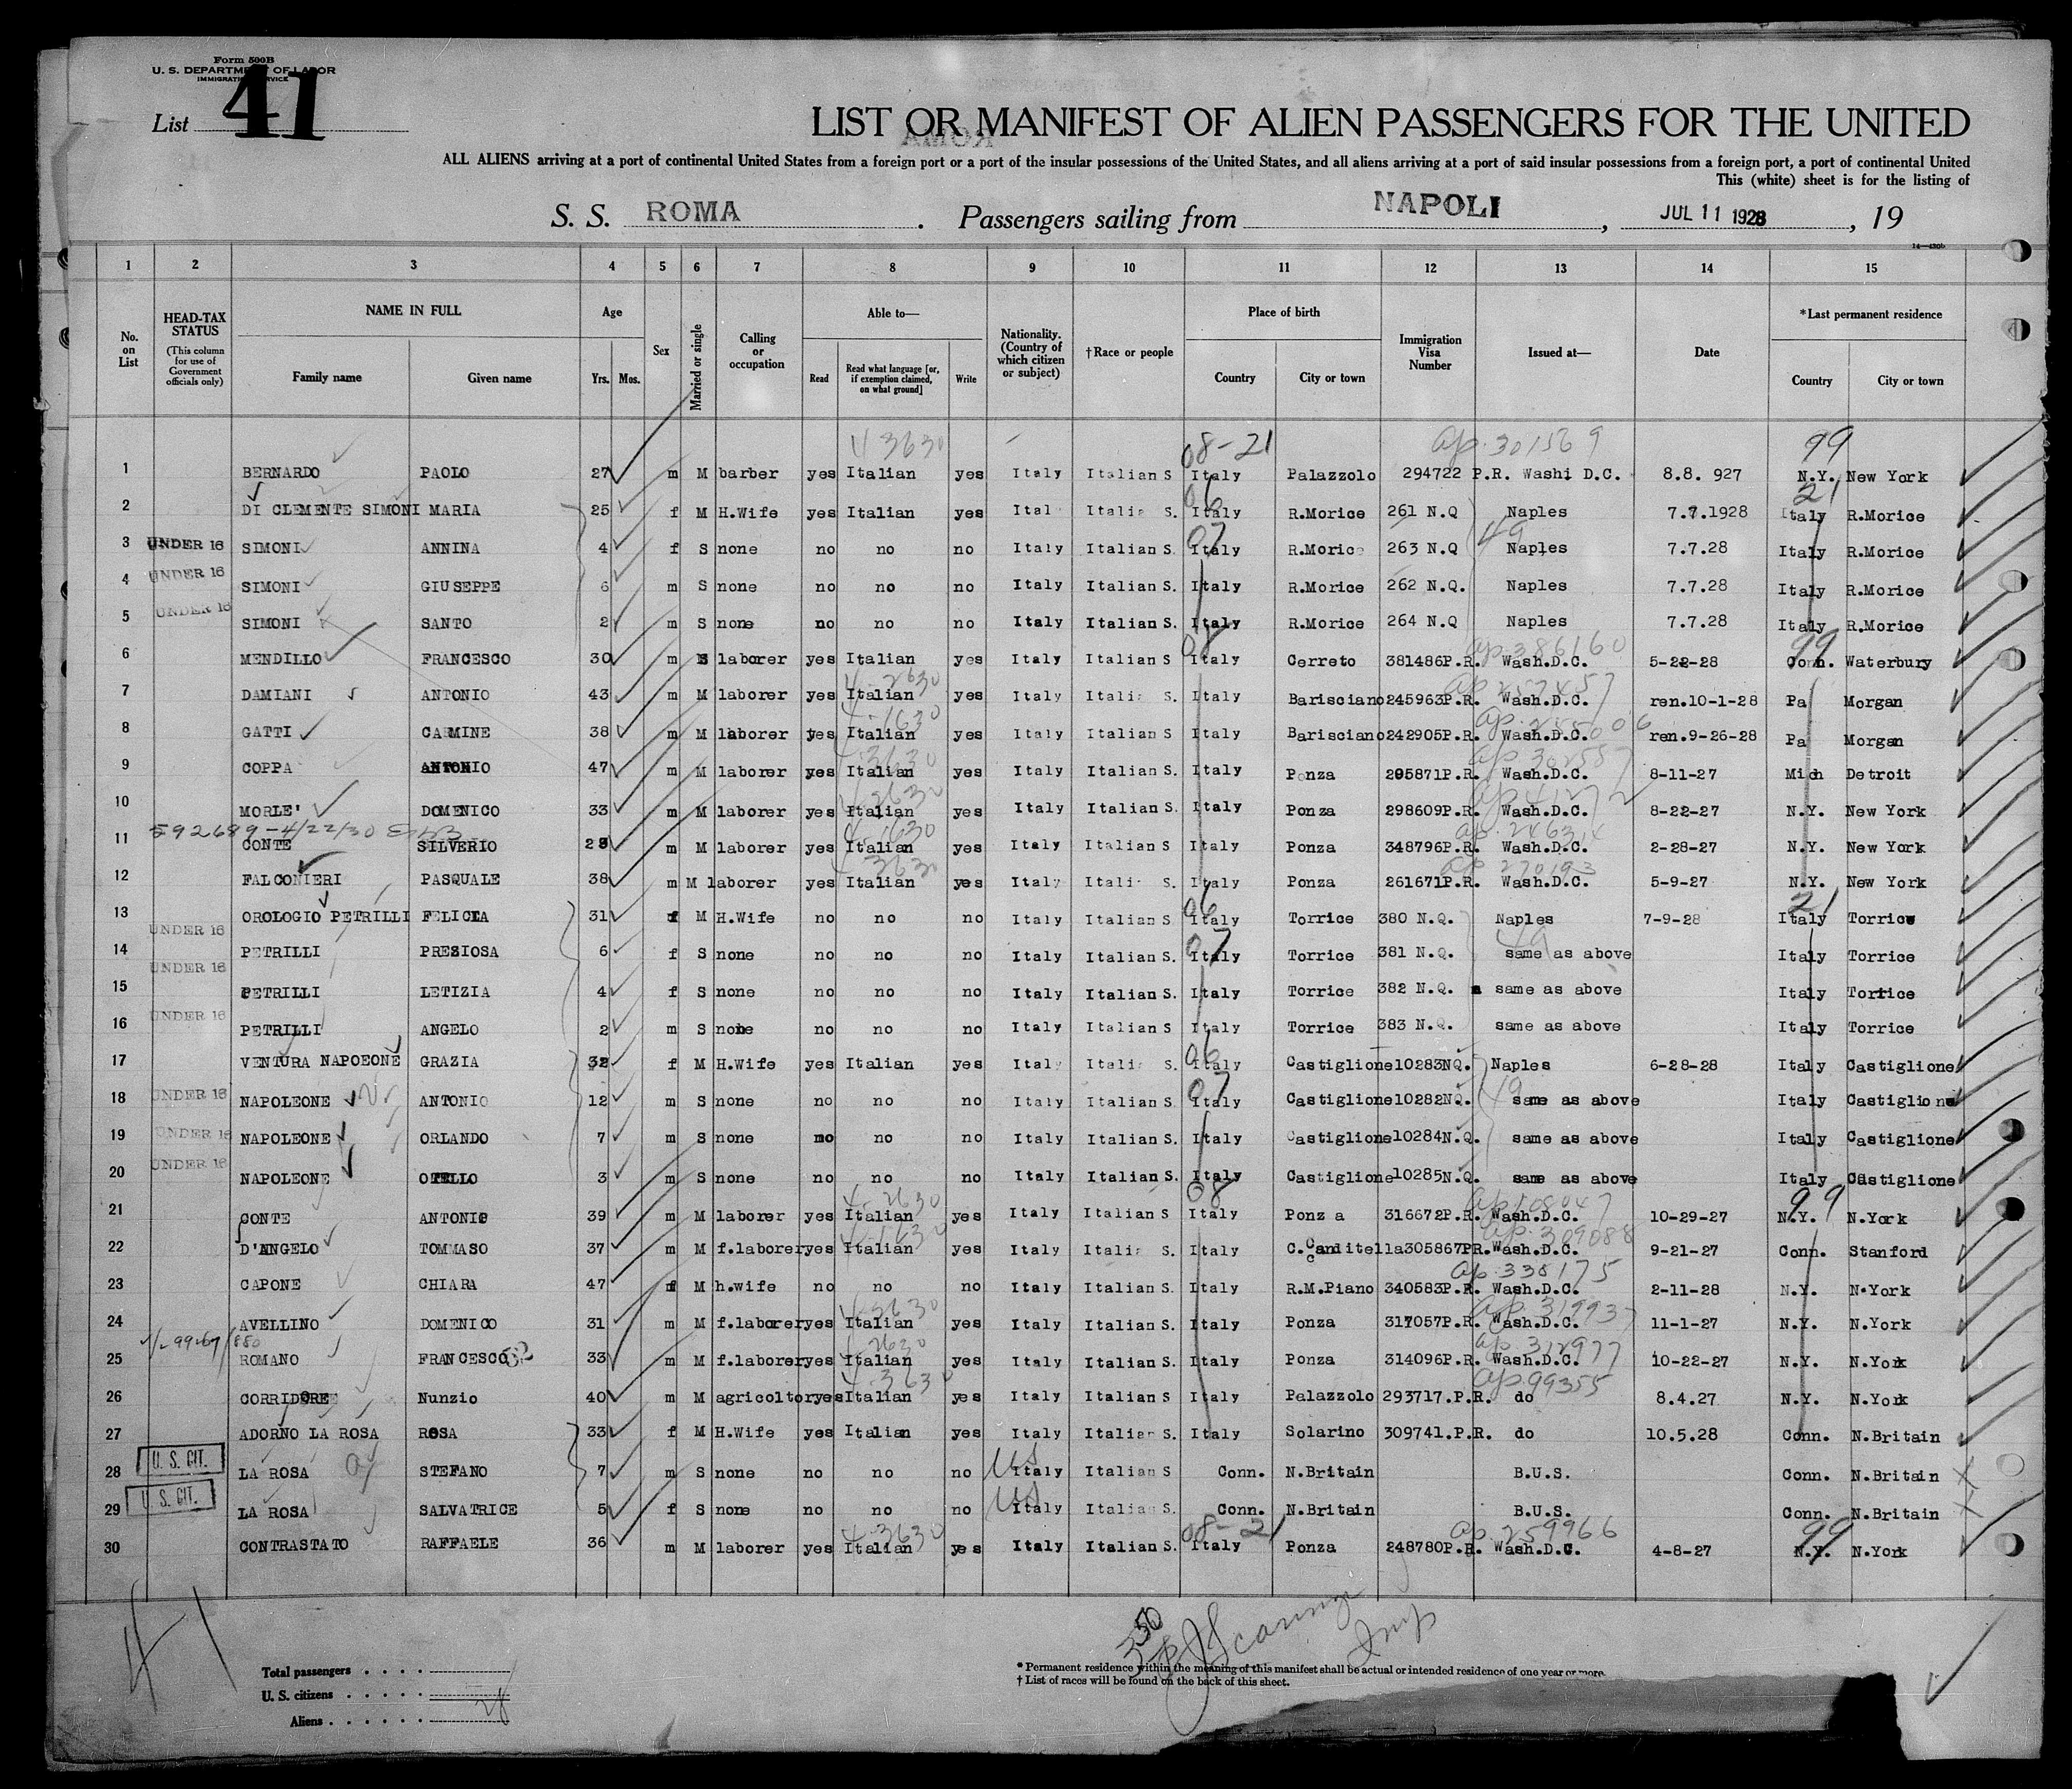 Form 500B
U. S. DEPARTMENT OF LABOR
IMMIGRATION SERVICE
List 41
LIST OR MANIFEST OF ALIEN PASSENGERS FOR THE UNITED
ALL ALIENS arriving at a port of continental United States from a foreign port or a port of the insular possessions of the United States, and all aliens arriving at a port of said insular possessions from a foreign port, a port of continental United
This (white) sheet is for the listing of
S. S. ROMA. Passengers sailing from NAPOLI, JUL 11 1928, 19
14—430b
1 2 3 4 5 6 7 8 9 10 11 12 13 14 15
No. on List HEAD-TAX STATUS (This column for use of Government officials only) NAME IN FULL Family name Given name Age Yrs. Mos. Sex Married or single Calling or occupation Able to— Read Read what language [or, if exemption claimed, on what ground] Write Nationality. (Country of which citizen or subject) †Race or people Place of birth Country City or town Immigration Visa Number Issued at— Date *Last permanent residence Country City or town
43630 08-21 ap. 301569 99
1 BERNARDO PAOLO 27 m M barber yes Italian yes Italy Italian S Italy Palazzolo 294722 P.R. Washi D.C. 8.8. 927 N.Y. New York
06 21
2 DI CLEMENTE SIMONI MARIA 25 f M H.Wife yes Italian yes Ital Italia S. Italy R.Morice 261 N.Q Naples 7.7.1928 Italy R.Morice
07 49
3 UNDER 16 SIMONI ANNINA 4 f S none no no no Italy Italian S. Italy R.Morice 263 N.Q Naples 7.7.28 Italy R.Morice
4 UNDER 16 SIMONI GIUSEPPE 6 m S none no no no Italy Italian S. Italy R.Morice 262 N.Q. Naples 7.7.28 Italy R.Morice
5 UNDER 16 SIMONI SANTO 2 m S none no no no Italy Italian S. Italy R.Morice 264 N.Q Naples 7.7.28 Italy R.Morice
08 ap. 386160 99
6 MENDILLO FRANCESCO 30 m S laborer yes Italian yes Italy Italian S Italy Cerreto 381486P.R. Wash.D.C. 5-22-28 Conn. Waterbury
4-2630 ap 257457
7 DAMIANI ANTONIO 43 m M laborer yes Italian yes Italy Italia S. Italy Barisciano 245963P.R. Wash.D.C. ren.10-1-28 Pa Morgan
4-1630
8 GATTI CARMINE 38 m M laborer yes Italian yes Italy Italian S Italy Barisciano 242905P.R. Wash.D.C. ren.9-26-28 Pa Morgan
4-3630
9 COPPA ANTONIO 47 m M laborer yes Italian yes Italy Italian S. Italy Ponza 295871P.R. Wash.D.C. 8-11-27 Mich Detroit
4-2630
10 MORLE' DOMENICO 33 m M laborer yes Italian yes Italy Italian S. Italy Ponza 298609P.R. Wash.D.C. 8-22-27 N.Y. New York
592689-4/22/30 4-1630 ap. 246314
11 CONTE SILVERIO 28 m M laborer yes Italian yes Italy Italian S Italy Ponza 348796P.R. Wash.D.C. 2-28-27 N.Y. New York
4-3630 ap 270193
12 FALCONIERI PASQUALE 38 m M laborer yes Italian yes Italy Itali S. Italy Ponza 261671P.R. Wash.D.C. 5-9-27 N.Y. New York
06 21
13 OROLOGIO PETRILLI FELICIA 31 f M H.Wife no no no Italy Italian S Italy Torrice 380 N.Q. Naples 7-9-28 Italy Torrice
07 49
14 UNDER 16 PETRILLI PRESIOSA 6 f S none no no no Italy Italian S. Italy Torrice 381 N.Q. same as above Italy Torrice
15 UNDER 16 PETRILLI LETIZIA 4 f S none no no no Italy Italian S. Italy Torrice 382 N.Q. same as above Italy Torrice
16 UNDER 16 PETRILLI ANGELO 2 m S none no no no Italy Italian S Italy Torrice 383 N.Q. same as above Italy Torrice
06
17 VENTURA NAPOEONE GRAZIA 32 f M H.Wife yes Italian yes Italy Itali S. Italy Castiglione 10283NQ. Naples 6-28-28 Italy Castiglione
07 49
18 UNDER 16 NAPOLEONE ANTONIO 12 m S none no no no Italy Italian S. Italy Castiglione 10282NQ. same as above Italy Castiglione
19 UNDER 16 NAPOLEONE ORLANDO 7 m S none no no no Italy Italian S. Italy Castiglione 10284N.Q. same as above Italy Castiglione
20 UNDER 16 NAPOLEONE OTELLO 3 m S none no no no Italy Italian S. Italy Castiglione 10285N.Q. same as above Italy Castiglione
4-2630 08 ap 108047 99
21 CONTE ANTONIO 39 m M laborer yes Italian yes Italy Italian S Italy Ponza 316672P.R. Wash.D.C. 10-29-27 N.Y. N.York
4-1630 ap. 309088
22 D'ANGELO TOMMASO 37 m M f.laborer yes Italian yes Italy Italia S. Italy C.Canditella 305867PR. Wash.D.C. 9-21-27 Conn. Stanford
ap. 338175
23 CAPONE CHIARA 47 f M h.wife no no no Italy Italian S. Italy R.M.Piano 340583P.R. Wash.D.C. 2-11-28 N.Y. N.York
4-2630 ap. 319937
24 AVELLINO DOMENICO 31 m M f.laborer yes Italian yes Italy Italian S. Italy Ponza 317057P.R. Wash.D.C. 11-1-27 N.Y. N.York
2630 ap 312977
25 ROMANO FRANCESCO 33 m M f.laborer yes Italian yes Italy Italian S. Italy Ponza 314096P.R. Wash.D.C. 10-22-27 N.Y. N.York
4-3630 ap. 99355
26 CORRIDORE Nunzio 40 m M agricoltor yes Italian yes Italy Italian S Italy Palazzolo 293717.P.R. do 8.4.27 N.Y. N.York
27 ADORNO LA ROSA ROSA 33 f M H.Wife yes Italian yes Italy Italian S. Italy Solarino 309741.P.R. do 10.5.28 Conn. N.Britain
28 U. S. CIT. LA ROSA STEFANO 7 m S none no no no US Italy Italian S Conn. N.Britain B.U.S. Conn. N.Britain
29 U. S. CIT. LA ROSA SALVATRICE 5 f S none no no no US Italy Italian S. Conn. N.Britain B.U.S. Conn. N.Britain
4-3630 08-21 ap. 259966 99
30 CONTRASTATO RAFFAELE 36 m M laborer yes Italian yes Italy Italian S. Italy Ponza 248780P.R. Wash.D.C. 4-8-27 N.Y. N.York
41
350
Total passengers
U. S. citizens
Aliens 28
* Permanent residence within the meaning of this manifest shall be actual or intended residence of one year or more.
† List of races will be found on the back of this sheet.